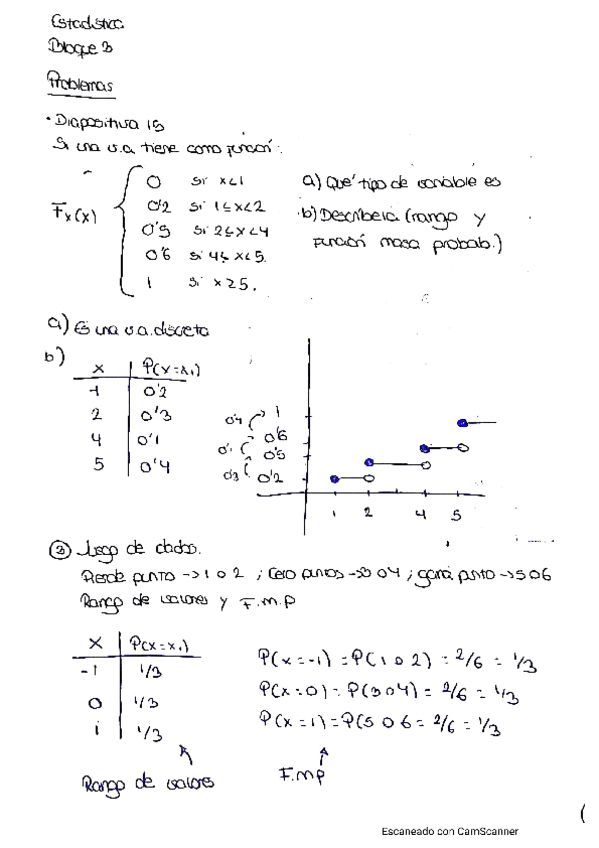 Estadística
Bloque 3
Problemas
• Diapositiva 15
Si una v.a. tiene como función:
Fx(x)
0 si x<1
0'2 si 1≤x<2
0'5 si 2≤x<4
0'6 si 4≤x<5
1 si x≥5.
a) Qué tipo de variable es
b) Descríbela (rango y
función masa probab.)
a) Es una v.a. discreta
b)
x P(X=xi)
1 0'2
2 0'3
4 0'1
5 0'4
0'4 1
0'1 0'6
0'3 0'5
0'2
1 2 4 5
② Juego de dados.
Pierde punto → 1 o 2 ; Cero puntos → 3 o 4 ; gana punto → 5 o 6
Rango de valores y F.m.p
X P(X=xi)
-1 1/3
0 1/3
1 1/3
P(X=-1) = P(1 o 2) = 2/6 = 1/3
P(X=0) = P(3 o 4) = 2/6 = 1/3
P(X=1) = P(5 o 6 = 2/6 = 1/3
Rango de valores
F.m.p
Escaneado con CamScanner